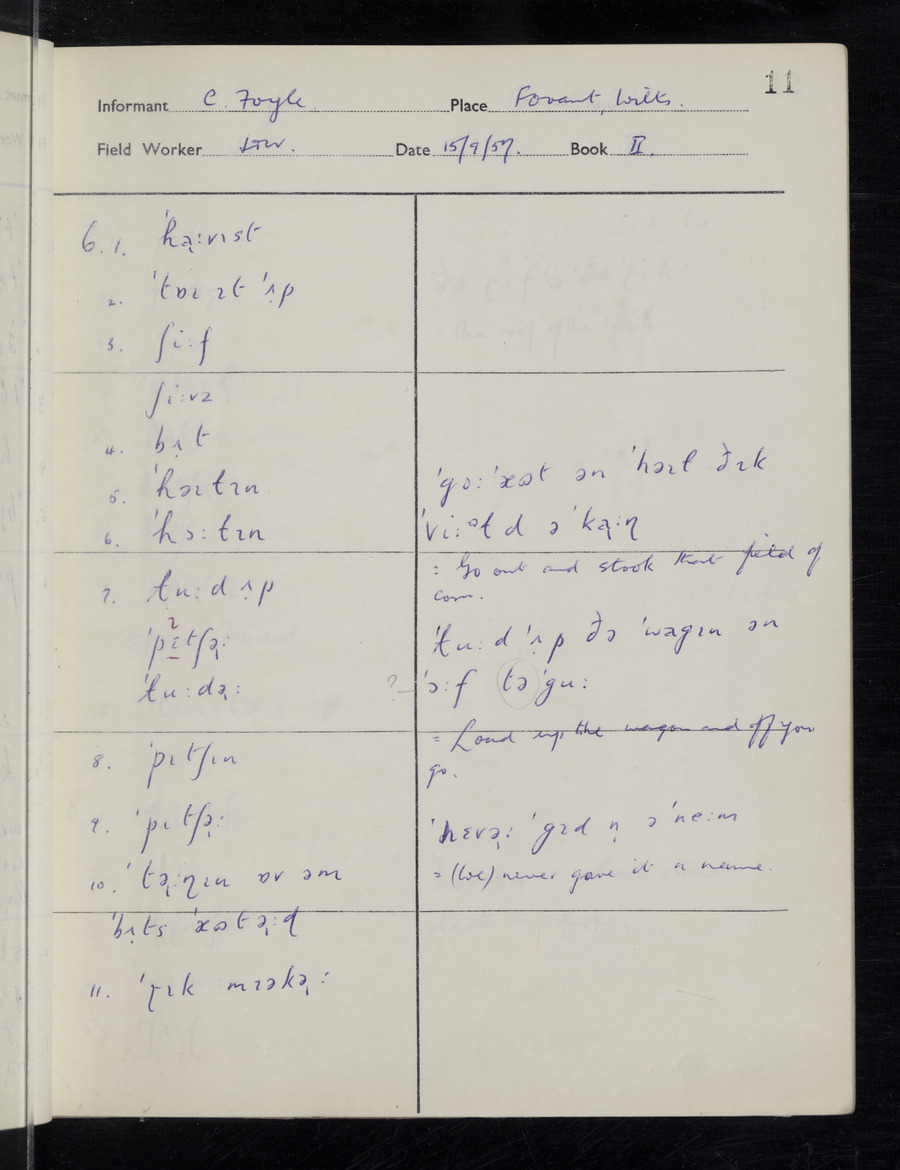 11
Informant C. Foyle. Place Fovant, Wilts.
Field Worker Date 15/9/57. Book II.
6. 1. ˈhə̢ːvɪst
2. ˈtɒɪ ɪt ˈʌ̣p
3. ʃiːf
ʃiːvz
4. bʌ̣t
5. ˈhəɪtɪn
6. ˈhɔːtɪn
7. ɫuːd ʌ̣p
ˈpɛtʃə̢ː
ɪ
ˈɫuːdə̢ː
8. ˈpɪtʃɪn
9. ˈpɪtʃə̢ː
10. ˈtə̢ːɳɪn ɒv əm
ˈbɪ̣ts ˈæʊtə̢ːɖ
11. ˈɽɪk mɪəkə̢ː
ˈgɔː ˈæʊt ən ˈhəɪt ðɪk
ˈviːəɫd ə ˈkə̢ːɳ
= Go out and stook that field of
corn.
ˈɫuːd ˈʌ̣p ðə ˈwagɪn ən
?– ˈɔːf tə ˈguː
= Load up the wagon and off you
go.
ˈnɛvə̢ː ˈgɪd n̩ ə ˈneːm
= (We) never gave it a name.